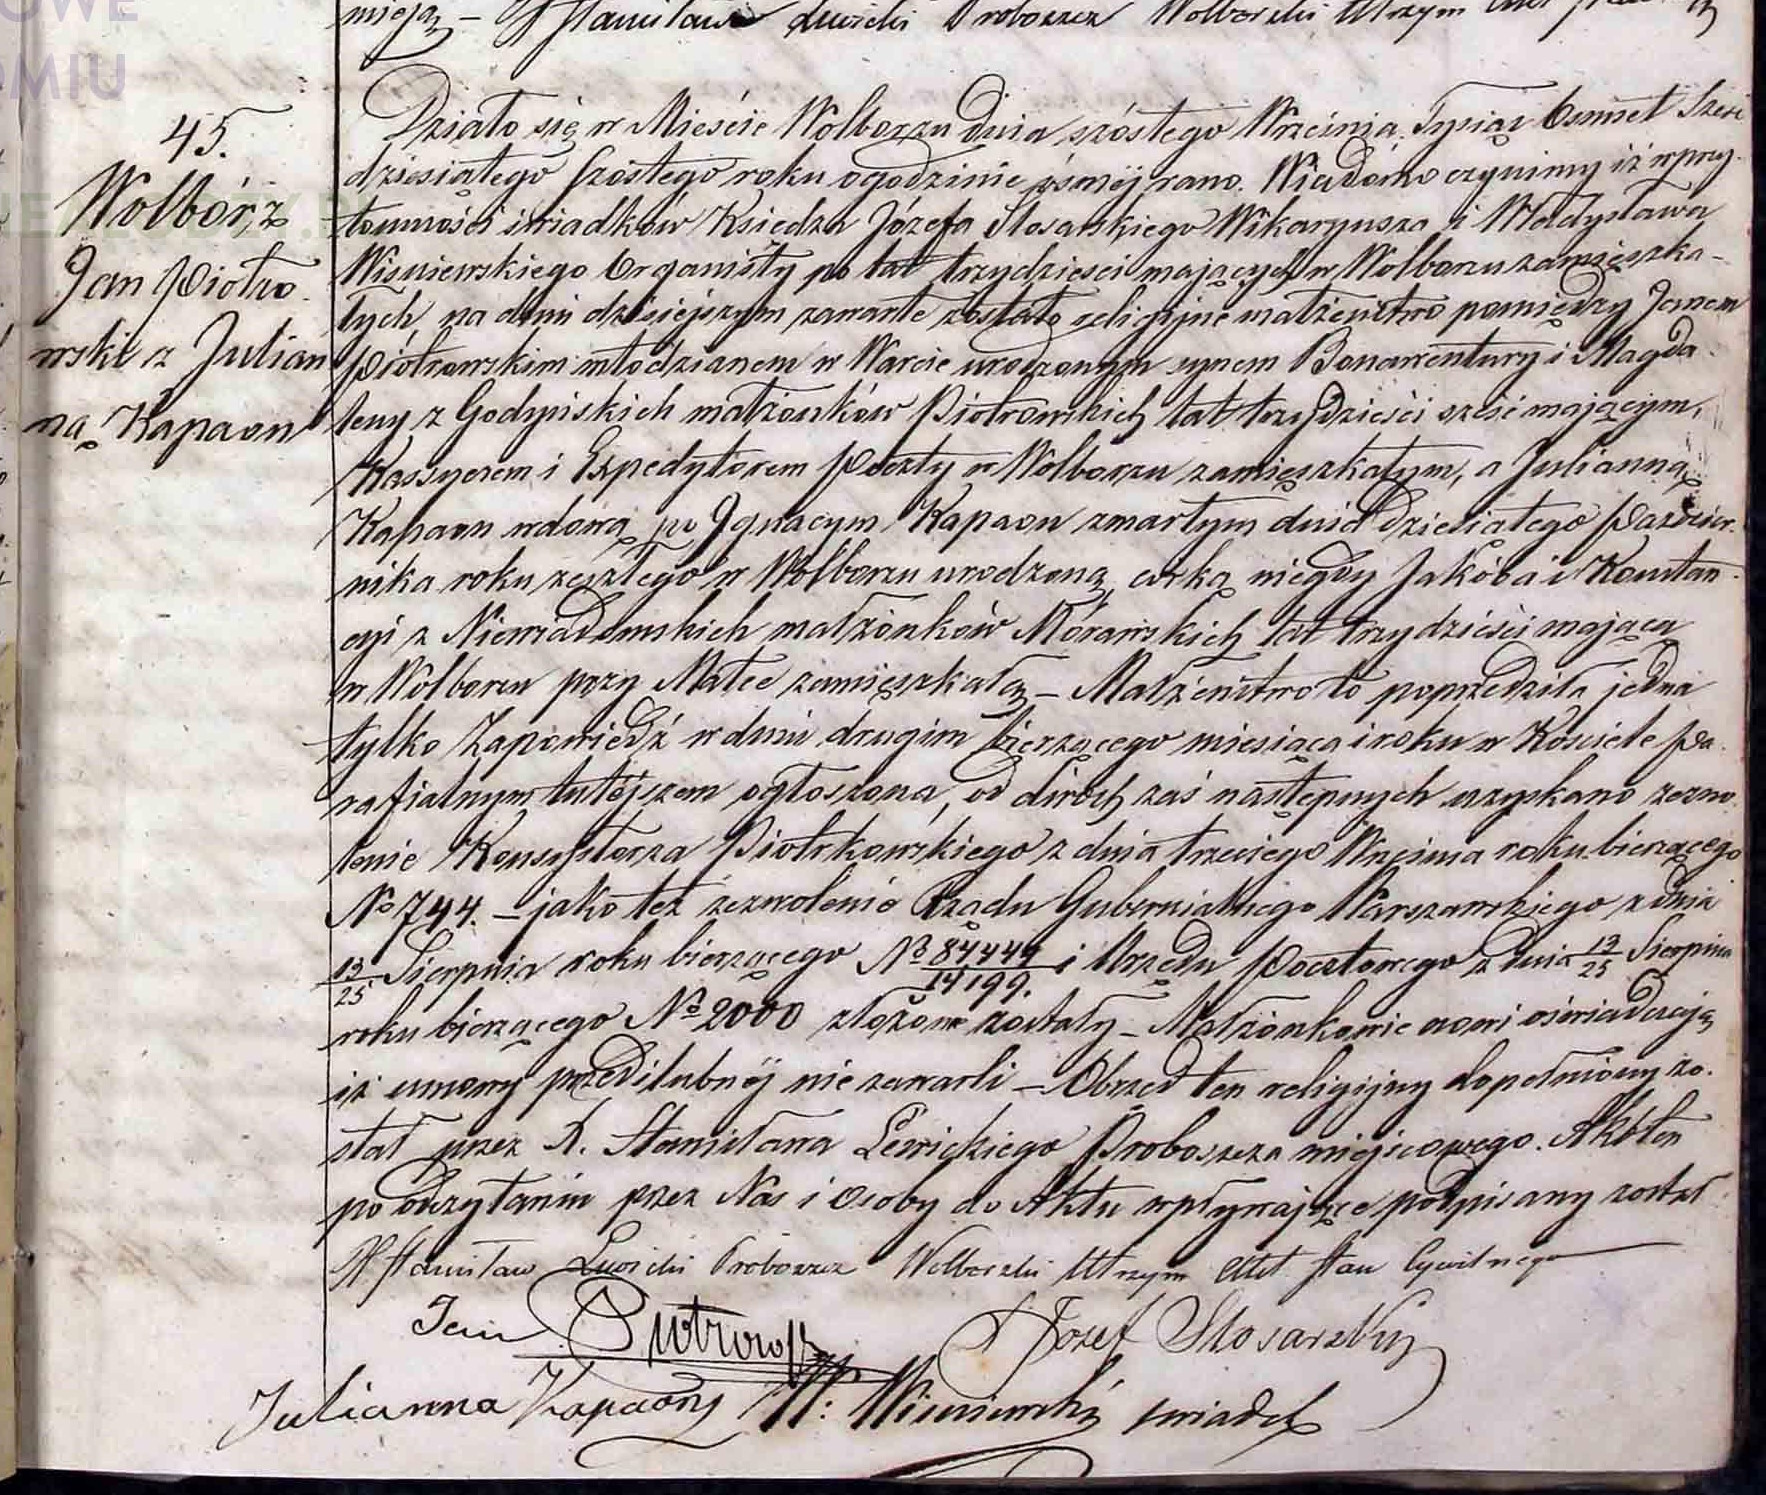 OWE
OMIU
mieją – X Stanisław Lewicki Proboszcz Wolborski Utrzym
45.
Wolbórz
Jan Piotro
wski z Julian
ną Kapaon
Działo się w Mieście Wolborzu dnia szóstego Września Tysiąc Ośmset Sześć
dziesiątego szóstego roku o godzinie ósmej rano. Wiadomo czynimy iż w przy-
tomności świadków Księdza Józefa Slosarskiego Wikaryusza i Władysława
Wiśniewskiego Organisty po lat trzydzieści mających w Wolborzu zamieszka-
łych, na dniu dzisiejszym zawarte zostało religijne małżeństwo pomiędzy Janem
Piotrowskim młodzianem w Warcie urodzonym synem Bonawentury i Magda-
leny z Godyńskich małżonków Piotrowskich lat trzydzieści sześć mającym,
Kassyerem i Expedytorem Poczty w Wolborzu zamięszkałym, a Julianną
Kapaon wdową po Ignacym Kapaon zmarłym dnia dziesiątego Paździer-
nika roku zeszłego w Wolborzu urodzoną, córką niegdy Jakóba i Konstan-
cyi z Niewiadomskich małżonków Morawskich lat trzydzieści mającą
w Wolborzu przy Matce zamięszkałą – Małżeństwo to poprzedziła jedna
tylko Zapowiedź w dniu drugim bieżącego miesiąca i roku w Kościele Pa-
rafialnym tutejszem ogłoszona, od dwóch zaś następnych uzyskano zezwo-
lenie Konsystorza Piotrkowskiego z dnia trzeciego Września roku bieżącego
No 744. – jako też zezwolenie Rządu Gubernialnego Warszawskiego z dnia
13/25 Sierpnia roku bieżącego No 84449/14199. i Urzędu Pocztowego z dnia 13/25 Sierpnia
roku bieżącego No 2000 złożone zostały – Małżonkowie nowi oświadczają
iż umowy przedślubnéj nie zawarli – Obrzęd ten religijny dopełniony zo-
stał przez X. Stanisława Lewickiego Proboszcza miejscowego. Akt ten
po odczytaniu przez Nas i Osoby do Aktu wpływające podpisany został
X Stanisław Lewicki Proboszcz Wolborski Utrzym Akt Stan Cywilnego
Jan Piotrowski X Józef Slosarski
Julianna Kapaony W: Wiśniewski świadek